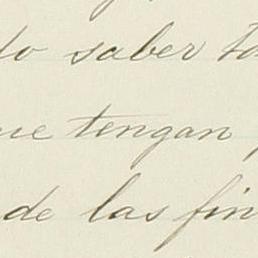 do saber
que tengan
de las fin